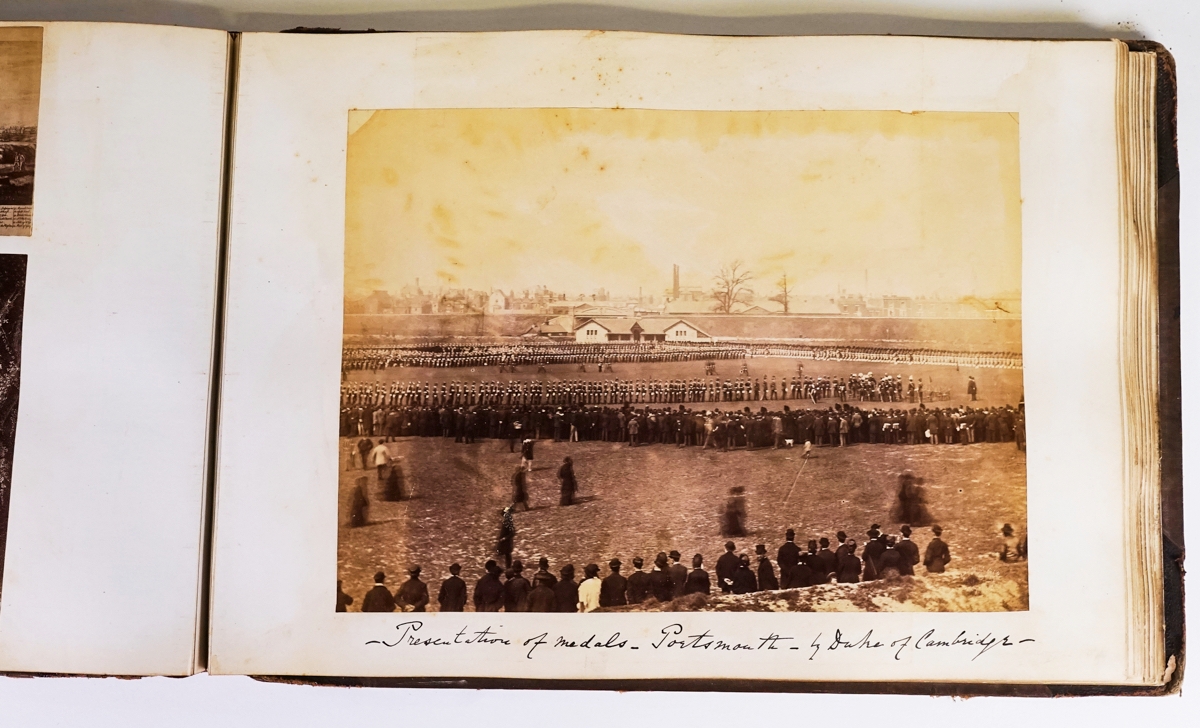 – Presentation of medals – Portsmouth – by Duke of Cambridge –